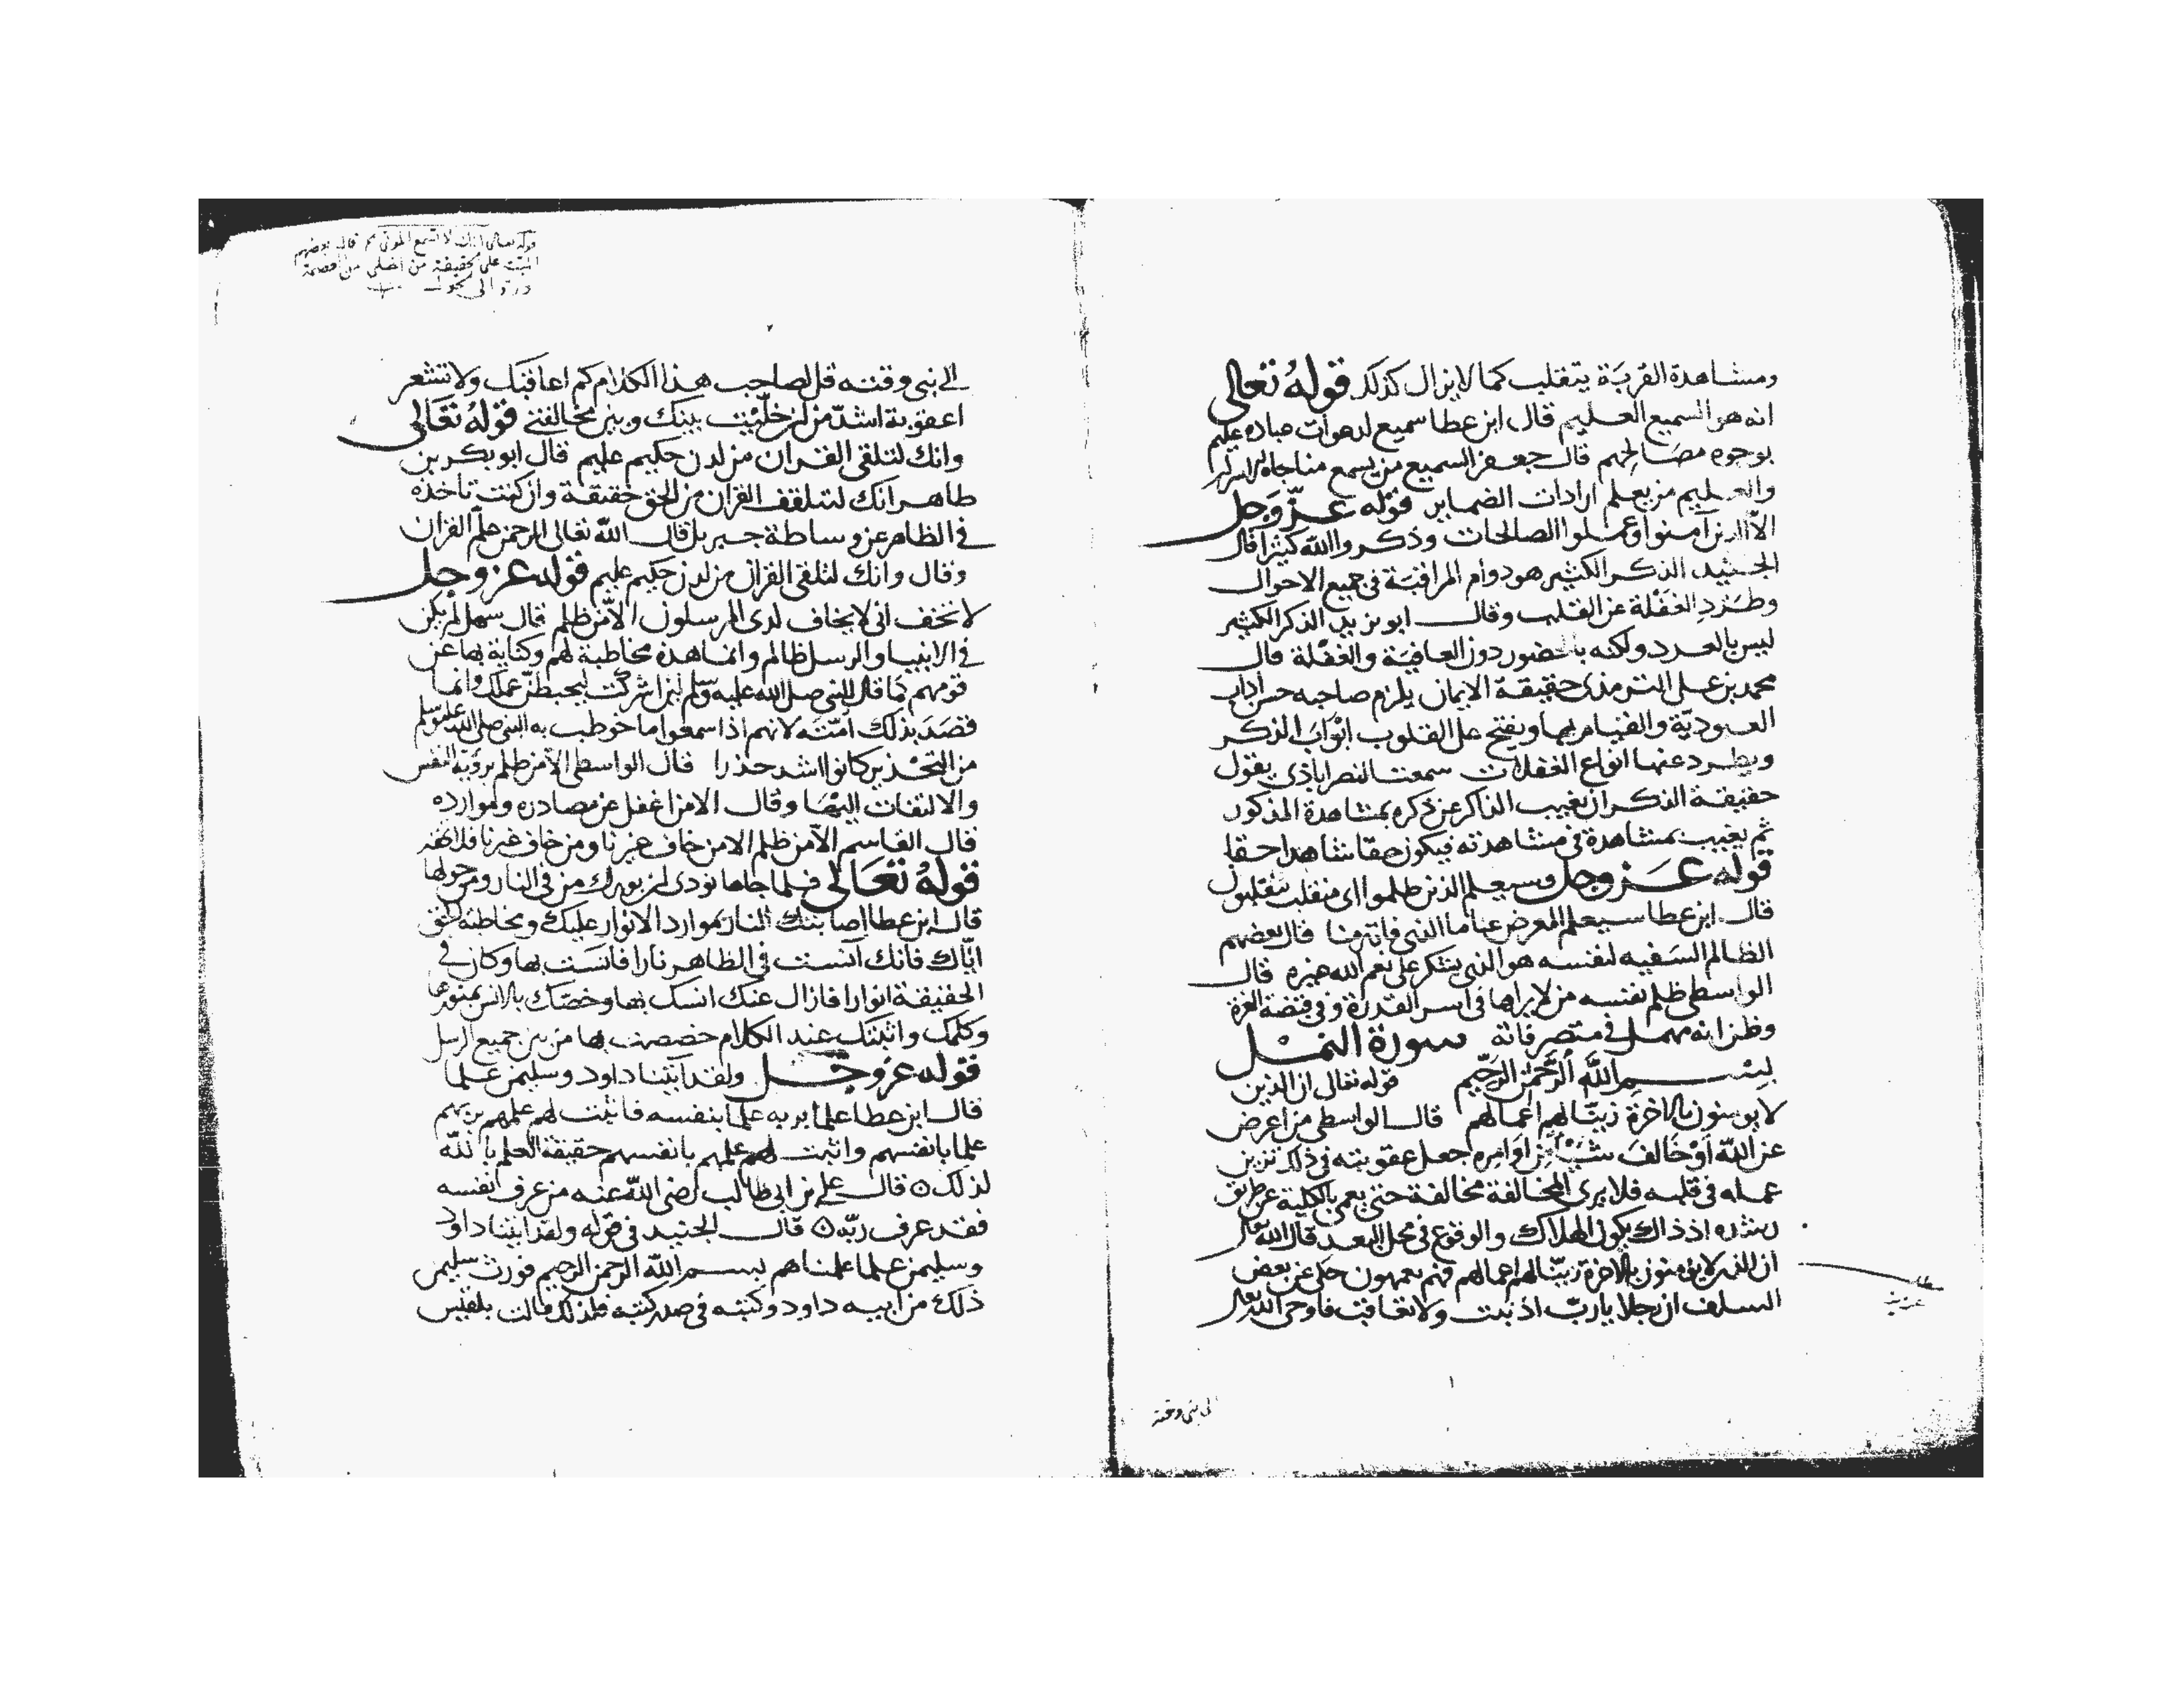 ومشاهدة القربة يتقلب كما لا يزال كذلك قوله تعالى
انه هو السميع العليم قال ابن عطا سميع لدعوات عباده عليم
بوجوه مصالحهم قال جعفر السميع من يسمع مناجاة الاسرار
والعليم من يعلم ارادات الضماير قوله عز وجل
الا الذين آمنوا وعملوا الصالحات وذكروا الله كثيرا قال
الجنيد الذكر الكثير هو دوام المراقبة في جميع الاحوال
وطرد الغفلة عن القلب وقال ابو يزيد الذكر الكثير
ليس بالعدد ولكنه بالحضور دون العافية والغفلة قال
محمد بن علي الترمذي حقيقة الايمان يلزم صاحبه حسن اداب
العبودية والقيام بها ويفتح على القلوب ابواب الذكر
ويطرد عنها انواع الغفلات سمعت النصراباذي يقول
حقيقة الذكر ان يغيب الذاكر عن ذكره بمشاهدة المذكور
ثم يغيب بمشاهدة في مشاهدته فيكون حقا شاهدا حقا
قوله عز وجل وسيعلم الذين ظلموا اي منقلب ينقلبون
قال ابن عطا سيعلم المعرض عنا ما الذي فاته منا قال بعضهم
الظالم السفيه لنفسه هو الذي يشكر على نعم الله غيره قال
الواسطي ظلم نفسه من لا يراها في اسر القدرة وفي قبضة العزة
وظن انه مهمل في متصرفاته سورة النمل
بسم الله الرحمن الرحيم قوله تعالى ان الذين
لا يومنون بالاخرة زينا لهم اعمالهم قال الواسطي من اعرض
عن الله او خالف شيئا من اوامره جعل عقوبته في ذلك تزيين
عمله في قلبه فلا يرى المخالفة مخالفة حتى يعمى بالكلية عن طريق
رشده اذ ذاك يكون الهلاك والوقوع في محل البعد قال الله تعالى
ان الذين لا يومنون بالاخرة زينا لهم اعمالهم فهم يعمهون حكي عن بعض
السلف ان رجلا يارب اذنبت ولا تعاقبت فاوحى الله تعالى
الى نبي وقته
قوله تعالى انك لا تسمع الموتى قال بعضهم
الميت على الحقيقة من
الى نبي وقته قل لصاحب هذا الكلام كم اعاقبك ولا تشعر
اعقوبة اشد من ان خليت بينك وبين مخالفتي قوله تعالى
وانك لتلقى القران من لدن حكيم عليم قال ابو بكر بن
طاهر انك لتتلقف القران من الحق حقيقة وان كنت تاخذه
في الظاهر عن وساطة جبريل قال الله تعالى الرحمن علم القران
وقال وانك لتلقى القران من لدن حكيم عليم قوله عز وجل
لا تخف اني لا يخاف لدي المرسلون الا من ظلم قال سهل لم يكن
في الانبيا والرسل ظالم وانما هذه مخاطبة لهم وكناية بها عن
قومهم كما قال للنبي صلى الله عليه وسلم لئن اشركت ليحبطن عملك وانما
قصد بذلك امته لانهم اذا سمعوا ما خوطب به النبي صلى الله عليه وسلم
من التحذير كانوا اشد حذرا قال الواسطي الا من ظلم برؤية النفس
والالتفات اليها وقال الا من اغفل عن مصادره وموارده
قال القاسم الا من ظلم الا من خاف غيرنا ومن خاف غيرنا فلاهنه
قوله تعالى فلما جاها نودي ان بورك من في النار ومن حولها
قال ابن عطا اصابتك النار بموارد الانوار عليك ومخاطبة الحق
اياك فانك آنست في الظاهر نارا فانست بها وكان في
الحقيقة انوارا فازال عنك انسك بها وخصك بالانس بمنورها
وكلمك واثبتك عند الكلام خصصت بها من بين جميع الرسل
قوله عز وجل ولقد آتينا داود وسليمن علما
قال ابن عطا علما بربه علما بنفسه فاثبت لهم علمهم بربهم
علما بانفسهم واثبت لهم علمهم بانفسهم حقيقة العلم بالله
لذلك ه قال علي بن ابي طالب رضي الله عنه من عرف نفسه
فقد عرف ربه ه قال الجنيد في قوله ولقد اتينا داود
وسليمن علما علمناهم بسم الله الرحمن الرحيم فورث سليمن
ذلك من ابيه داود وكتبه في صدر كتبه فلذلك قالت بلقيس